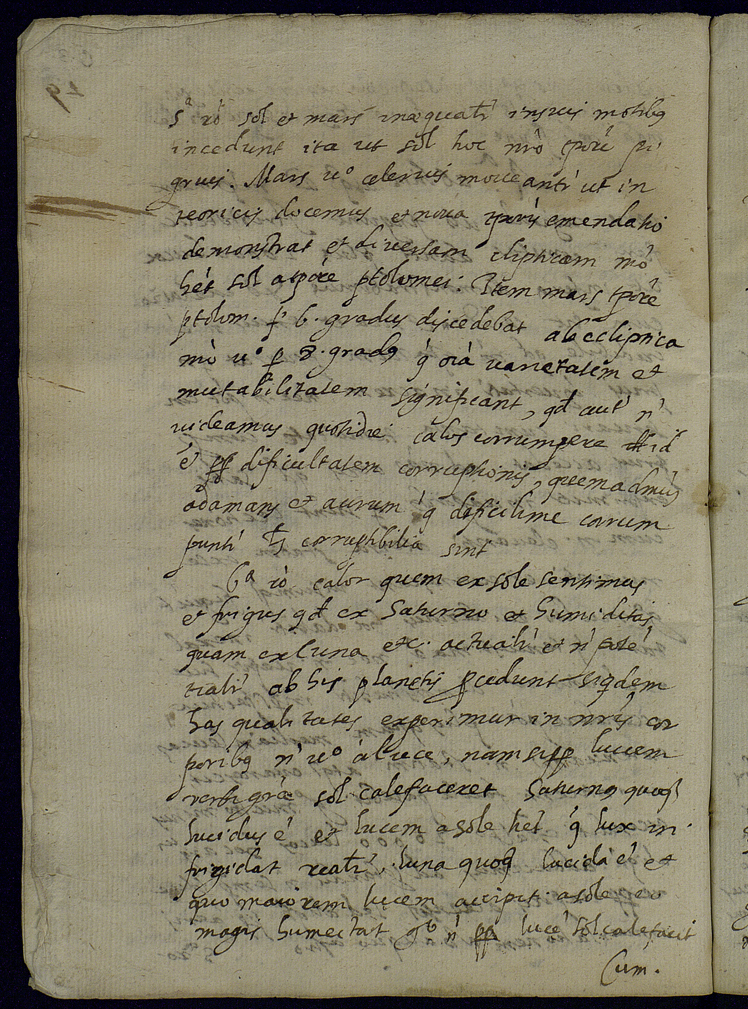 5ª rò sol et mars inæqualr̃ in suis motibꝫ
incedunt ita ut sol hoc nr̃o tpore pi
grius. Mars u° celerius moueantr̃ ut in
teoricis docemus et noua tporis emendatio
demonstrat et diuersam eclipticam mò
hét sol a tpore ptolomei: Item mars tpore
ptolom. p 6. gradus discedebat ab ecliptica
mò u° p 8. gradꝫ q̃ oia uarietatem et
mutabilitatem significant, qđ aut̃ ñ
uideamus quotidie cælos corrumpere id
ẽ pp dificultatem corruptionis, quemadmũ
adamans et aurum q̃ dificilime corrum
puntr̃ tñ corruptibilia sint
6ª rò calor quem ex sole sentimus
et frigus qđ ex Saturno et humiditas
quam ex luna etc. actualr̃ et ñ poté
tialr̃ ab his planetis pcedunt siqdem
has qualitates experimur in nr̃is cor
poribꝫ ñ u° a luce, nam si pp lucem
verbi grã sol calefaceret Saturnꝫ quoqꝫ
lucidus ẽ et lucem a sole hét q̃ lux in
frigidat realr̃, luna quoqꝫ lucida ẽ et
quo maiorem lucem accipit a sole eo
magis humectat ñ pp lucẽ sol calefacit
Cum.